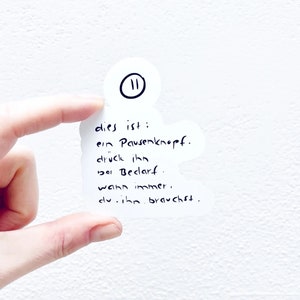 dies ist:
ein Pausenknopf.
drück ihn
bei Bedarf.
wann immer.
du. ihn brauchst.